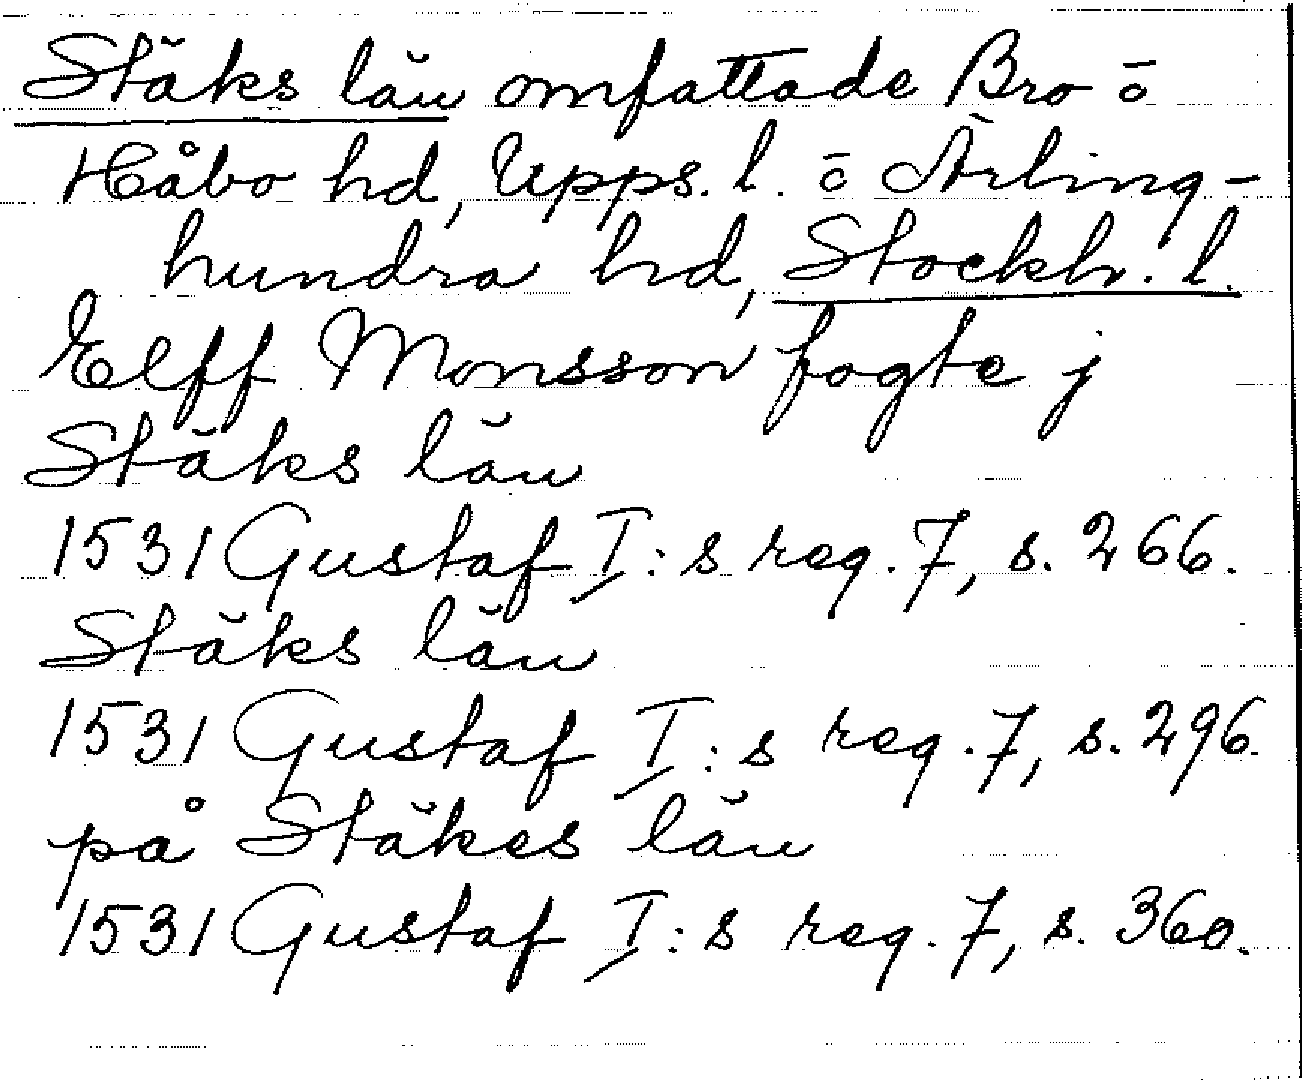 Stäks län omfattade Bro ō
Håbo hd, Upps. l. ō Ärling-
hundra hd, Stockh. l.
Elff Monsson fogte j
Stäks län
1531 Gustaf I:s reg. 7, s. 266.
Stäks län
1531 Gustaf I:s reg. 7, s. 296.
på Stäkes län
1531 Gustaf I:s reg. 7, s. 360.